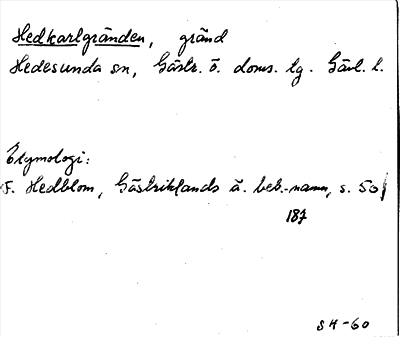 Hedkarlgränden, gränd
Hedesunda sn, Gästr. ö. doms. tg. Gävl. l.
Etymologi:
F. Hedblom, Gästriklands ä. beb.-namn, s. 50
187
SH-60